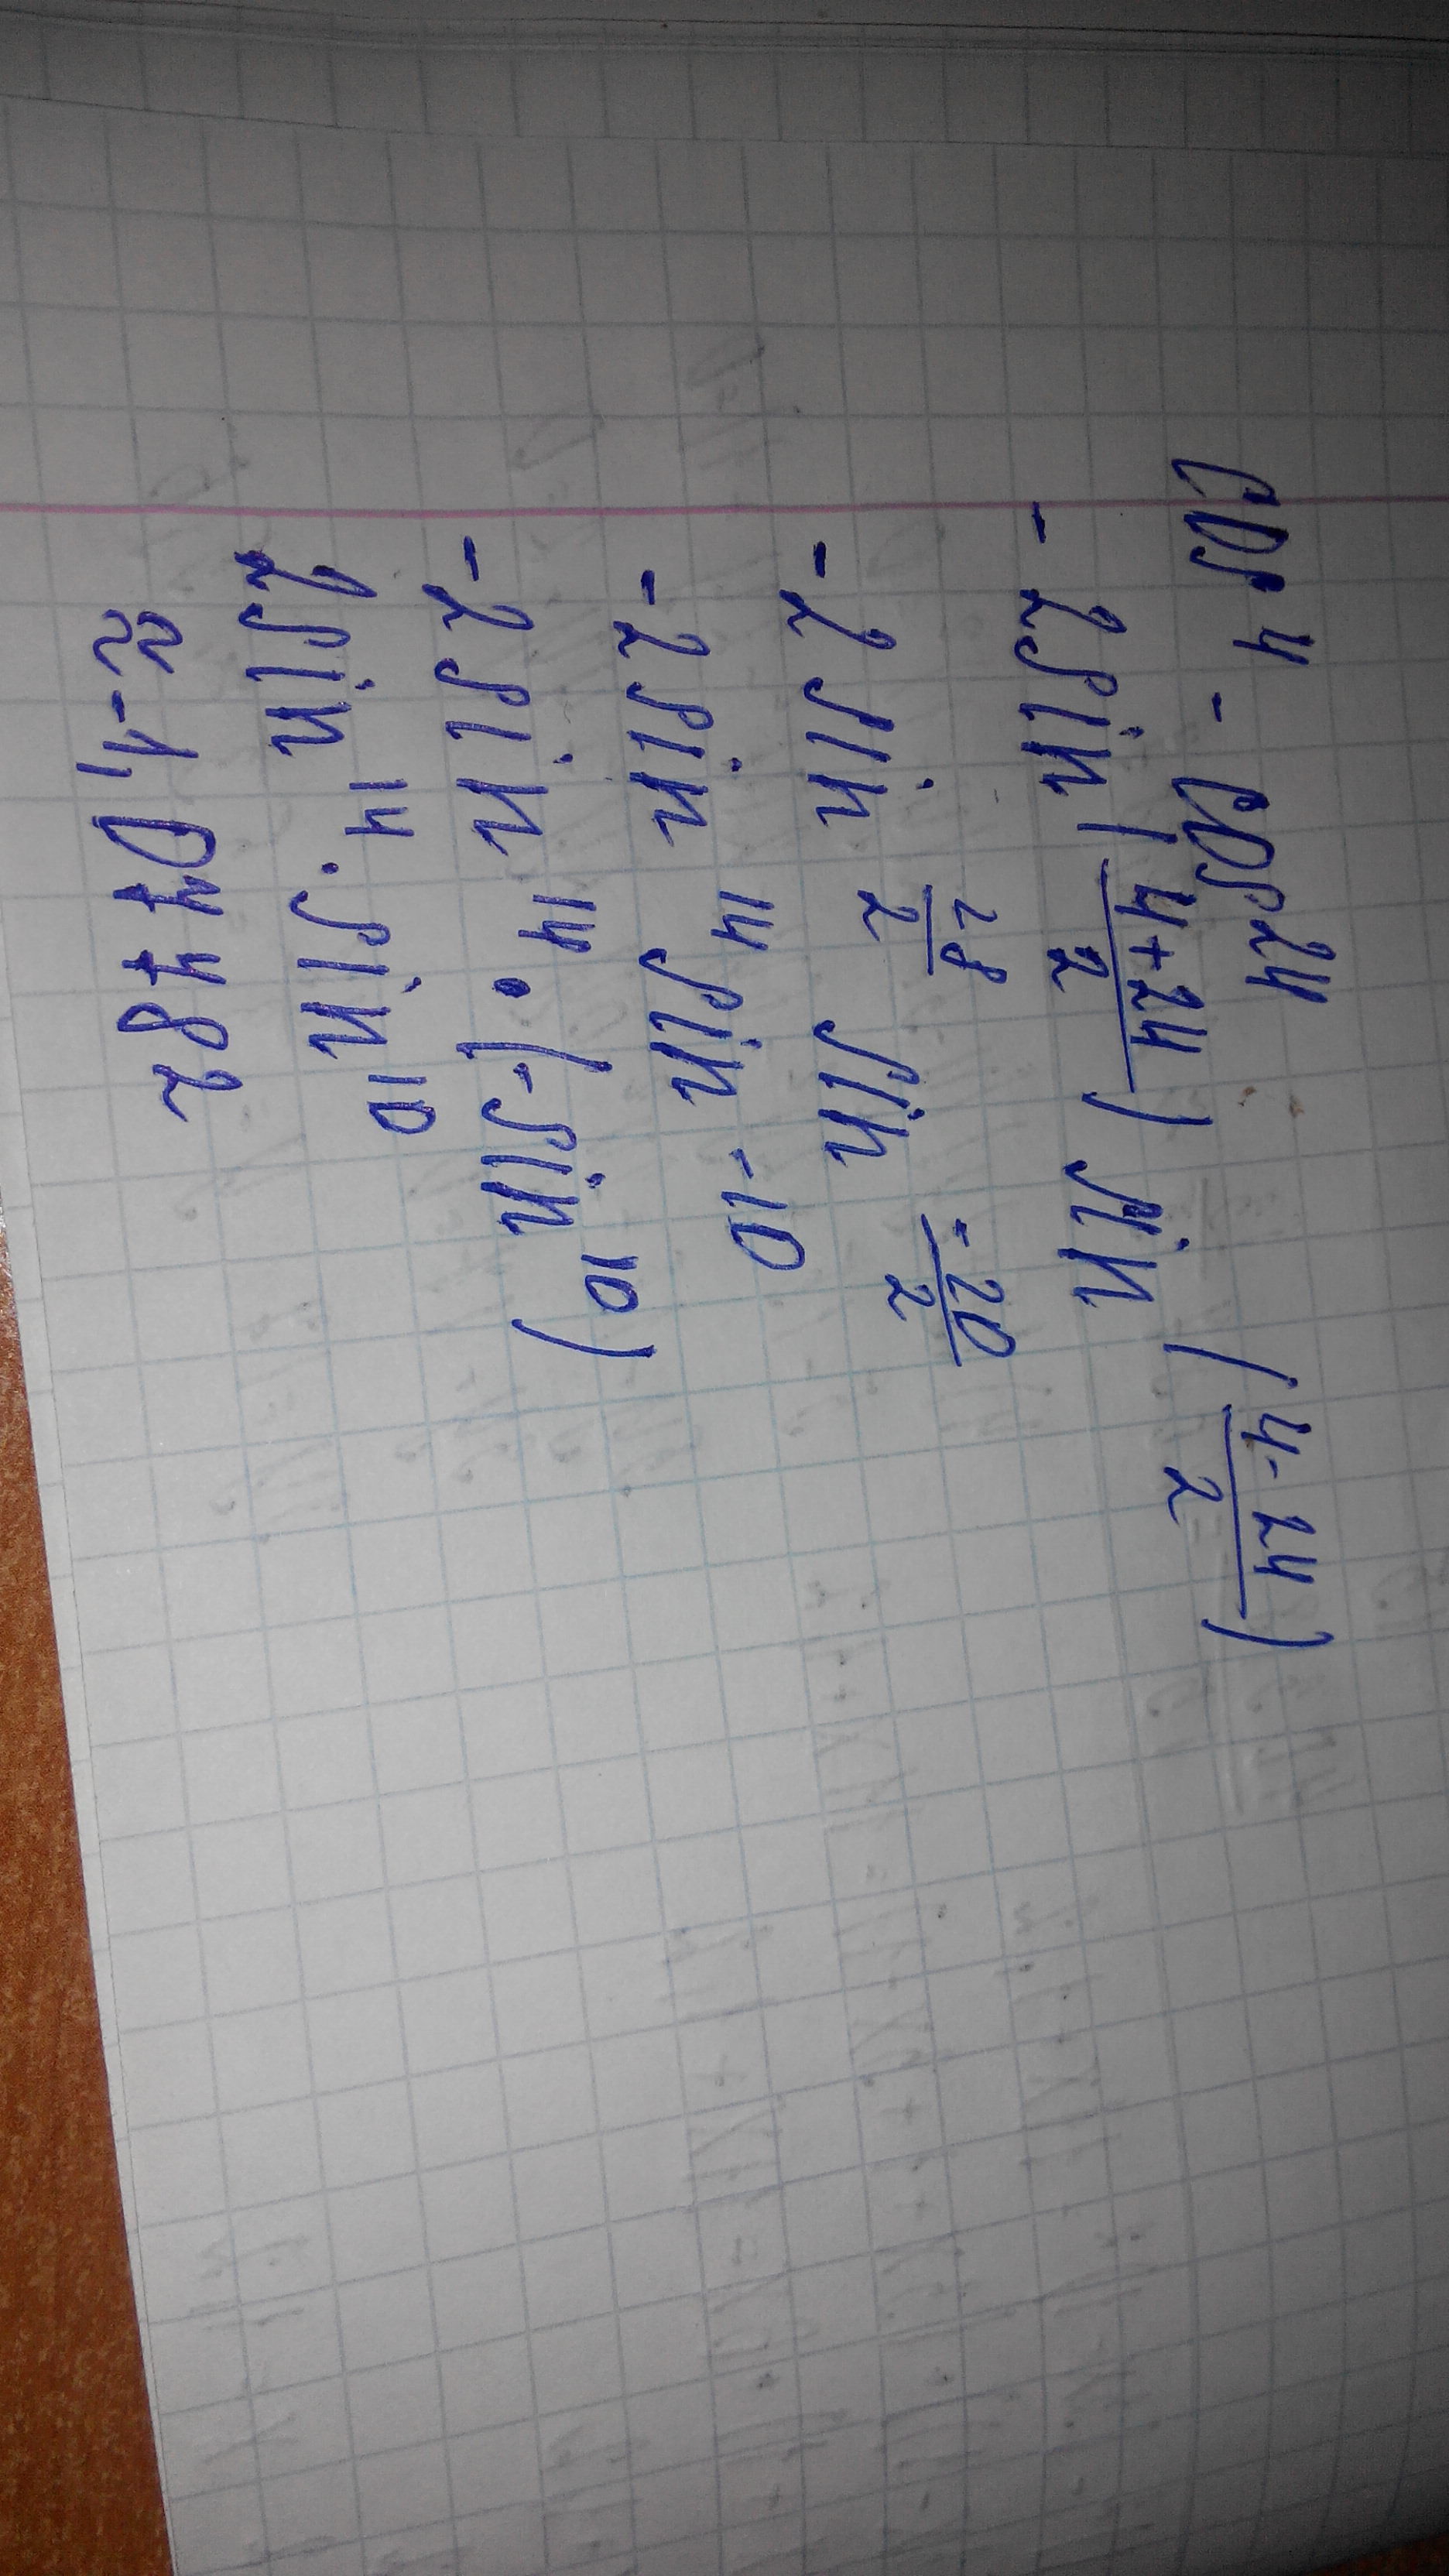 cos 4 - cos 24
- 2 sin (4+24/2) sin (4-24/2)
- 2 sin 28/2 sin -20/2
- 2 sin 14 sin -10
- 2 sin 14 · (-sin 10)
2 sin 14 · sin 10
≈ -1,07782